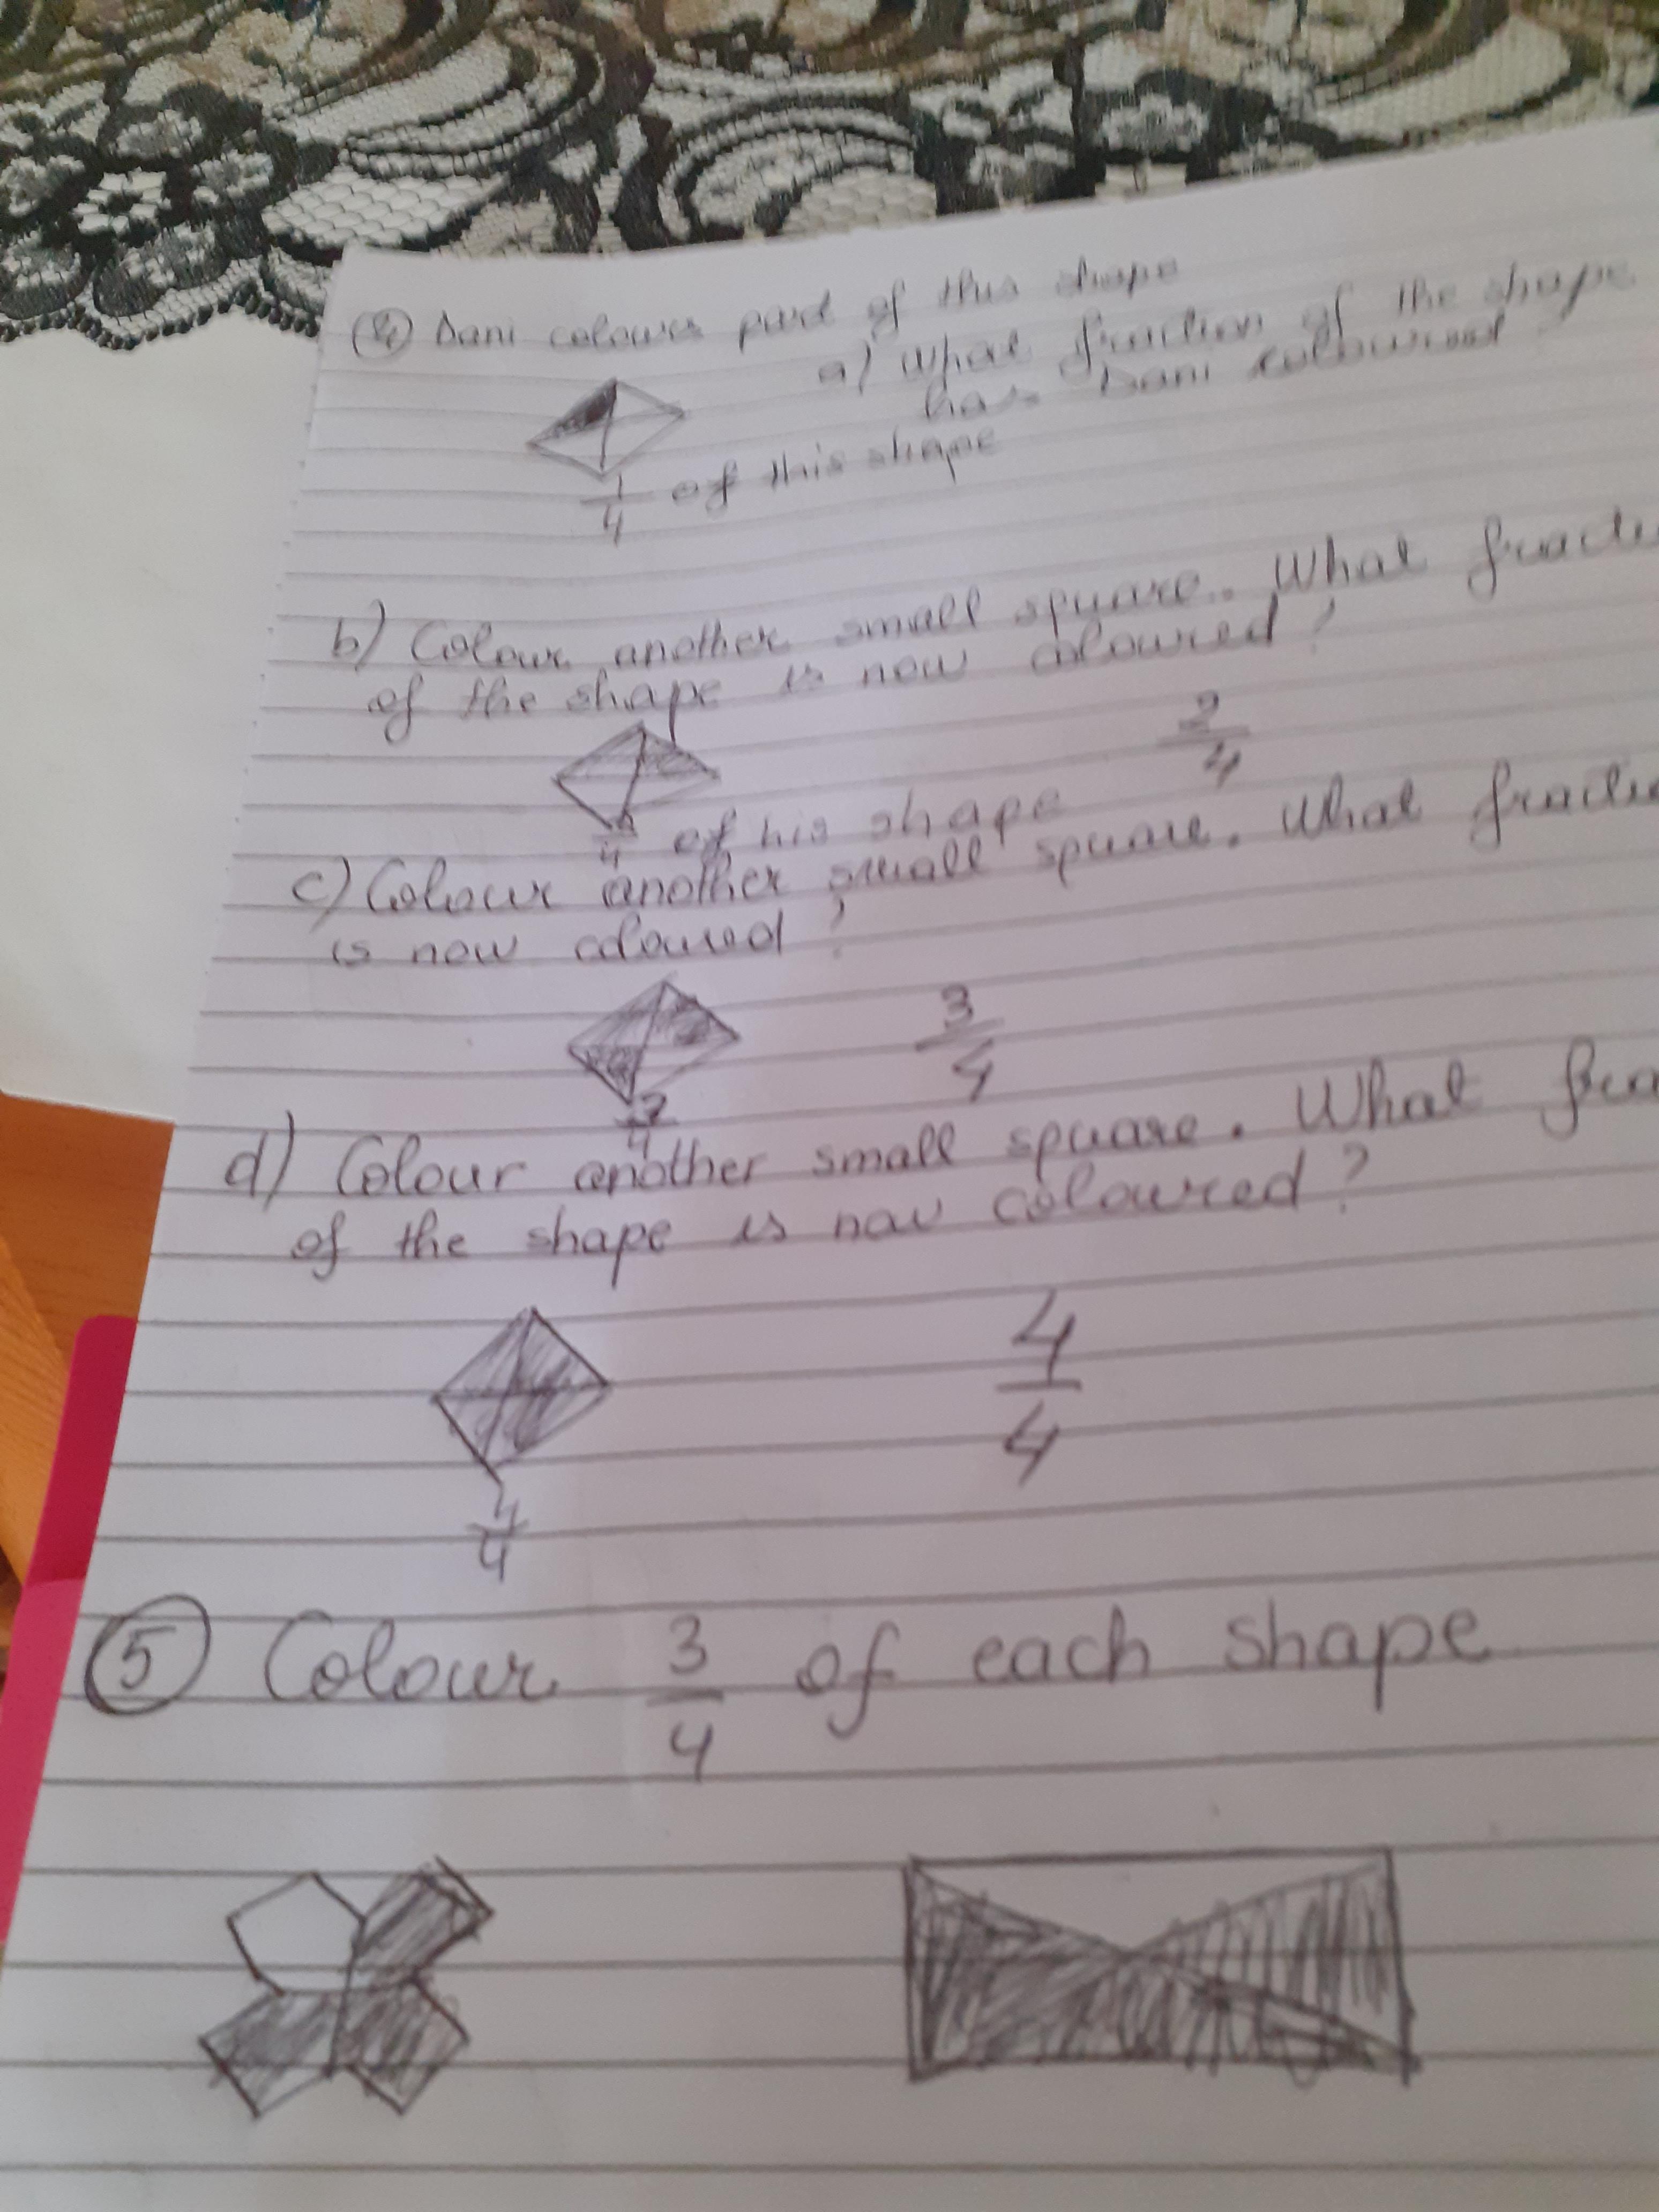 ④ Dani colours part of this shape
a) What fraction of the shape
has Dani coloured
1/4 of this shape
b) Colour another small square. What
of the shape is now coloured?
2/4
/4 of his shape
c) Colour another small square. What
is now coloured?
3/4
3/4
d) Colour another small square. What
of the shape is now coloured?
4/4
4/4
⑤ Colour 3/4 of each shape